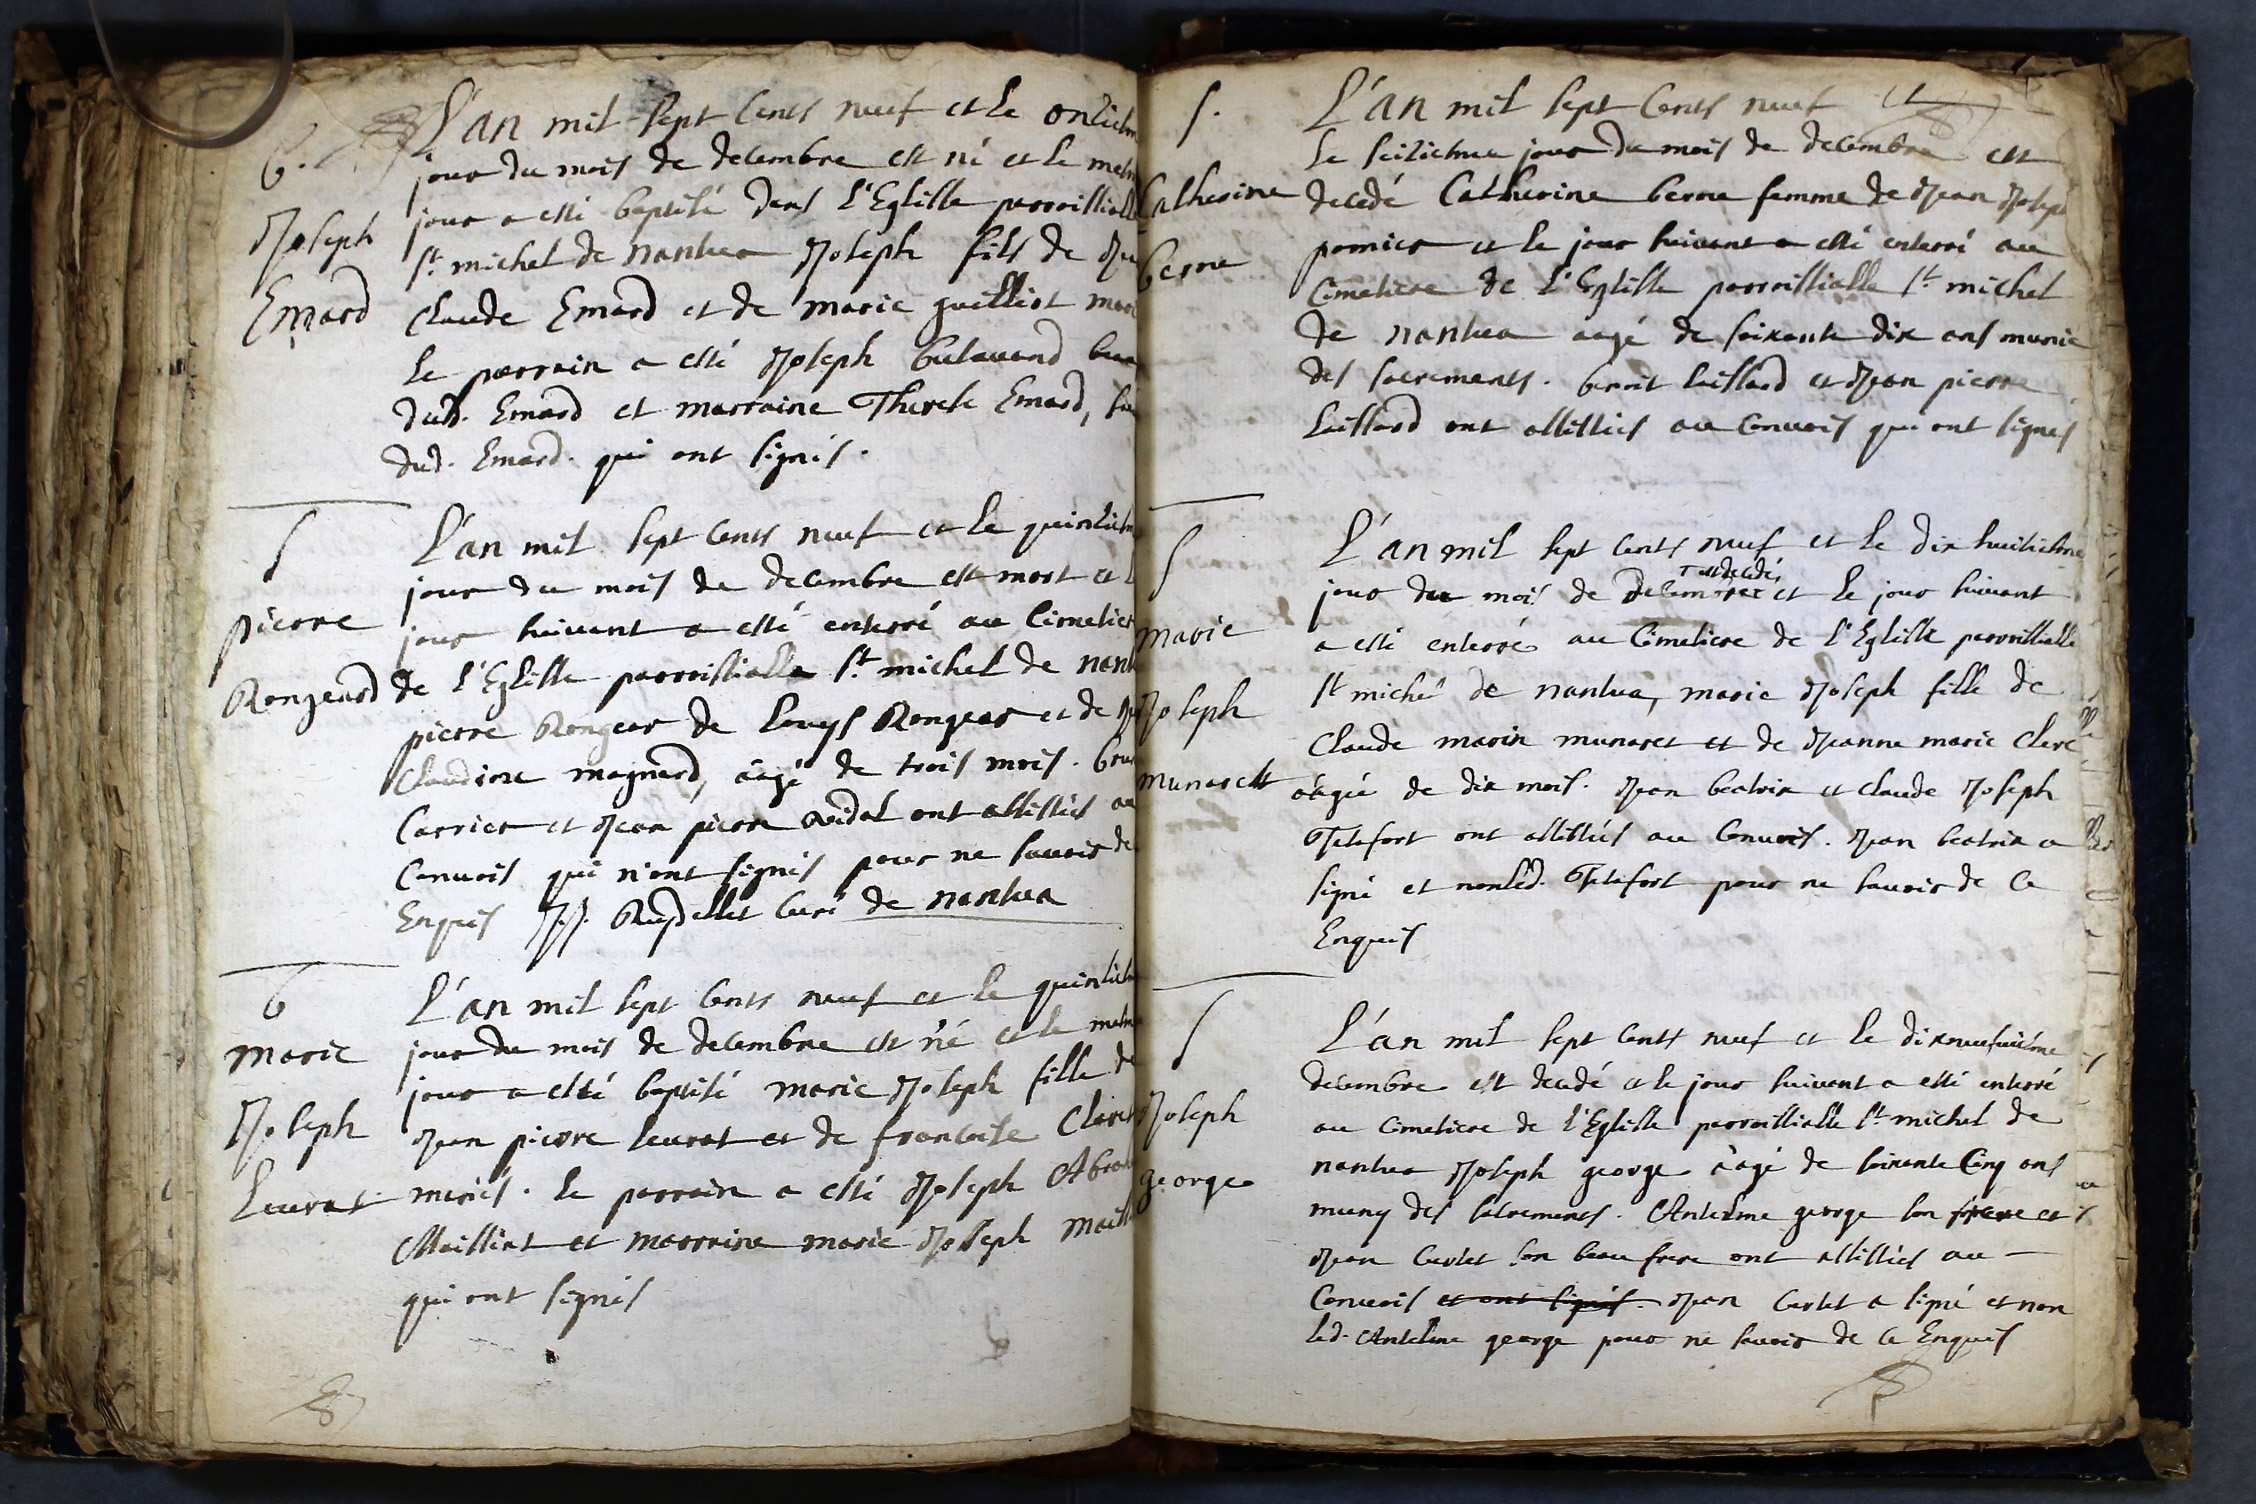 B.
Joseph
Emard
L'an mil sept cents neuf et le onziesm
jour du mois de decembre est né et le mesm
jour a esté baptisé dans l'Eglisse parroissialle
St. michel de nantua Joseph fils de
Claude Emard et de marie guilliot mari
Le parrain a esté Joseph
dud. Emard et marraine Therese Emard,
dud. Emard. qui ont signés.
S
pierre
Rongeard
L'an mil sept cents neuf et le quinziesm
jour du mois de decembre est mort et l
jour suivant a esté enterré au Cimetier
de l'Eglisse parroissialle St. michel de nant
pierre Rongear de Louys Rongear et de
Claudine magnard, aagé de trois mois.
Carrier et Jean pierre Vidal ont assistés au
Convois qui n'ont signés pour ne savoir de
Enquis J.J. Ruydellet Curé de nantua
B
marie
Joseph
Leurat
L'an mil sept cents neuf et le quinziesm
jour du mois de decembre est né et le mesm
jour a esté baptisé marie Joseph fille de
Jean pierre leurat et de francoise Cleret
mariés. Le parrain a esté Joseph Abra
Mailliat et marraine marie Joseph Mail
qui ont signés
S.
Catherine
berne
L'an mil sept Cents neuf et
le seiziesme jour du mois de decembre est
decedé Catherine berne femme de Jean Joseph
pomier et le jour suivant a esté enterré au
Cimetiere de l'Eglisse parroissialle St. michel
de nantua aagé de soixante dix ans munie
des sacrements. benoit laissard et Jean pierre
Laissard ont assistés au Convois qui ont signés
S
marie
Joseph
munarett
L'an mil sept cents neuf et le dix huitiesme
est decedé
jour du mois de decembre et le jour suivant
a esté enterré au Cimetiere de l'Eglisse parroissialle
St michel de nantua, marie Joseph fille de
Claude marin munaret et de Jeanne marie Clerc
aagée de dix mois. Jean beatrix et Claude Joseph
Tetafort ont assistés au Convois. Jean beatrix a
signé et non led. Tetafort pour ne savoir de ce
Enquis
S
Joseph
george
L'an mil sept cents neuf et le dixneufviesme
decembre est decedé et le jour suivant a esté enterré
au Cimetiere de l'Eglisse parroissialle St. michel de
nantua Joseph george aagé de soixante Cinq ans
muny des sacrements. Antelme george son frere et
Jean Curlet son beau frere ont assistés au
Convois et ont signés. Jean Curlet a signé et non
led. Antelme george pour ne savoir de ce Enquis